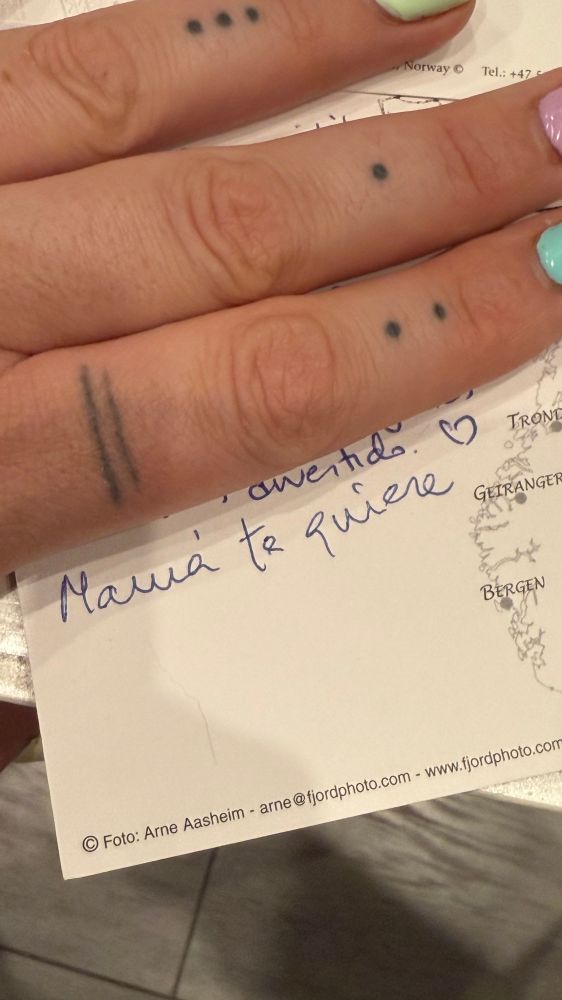 Norway © Tel.: +47
divertido. ♡
Mamá te quiere
TROND
GEIRANGER
BERGEN
© Foto: Arne Aasheim - arne@fjordphoto.com - www.fjordphoto.com